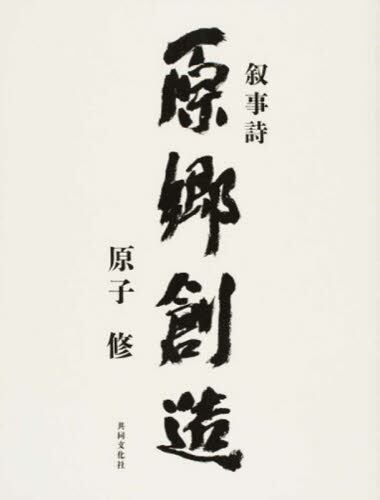 叙事詩
原郷創造
原子 修
共同文化社